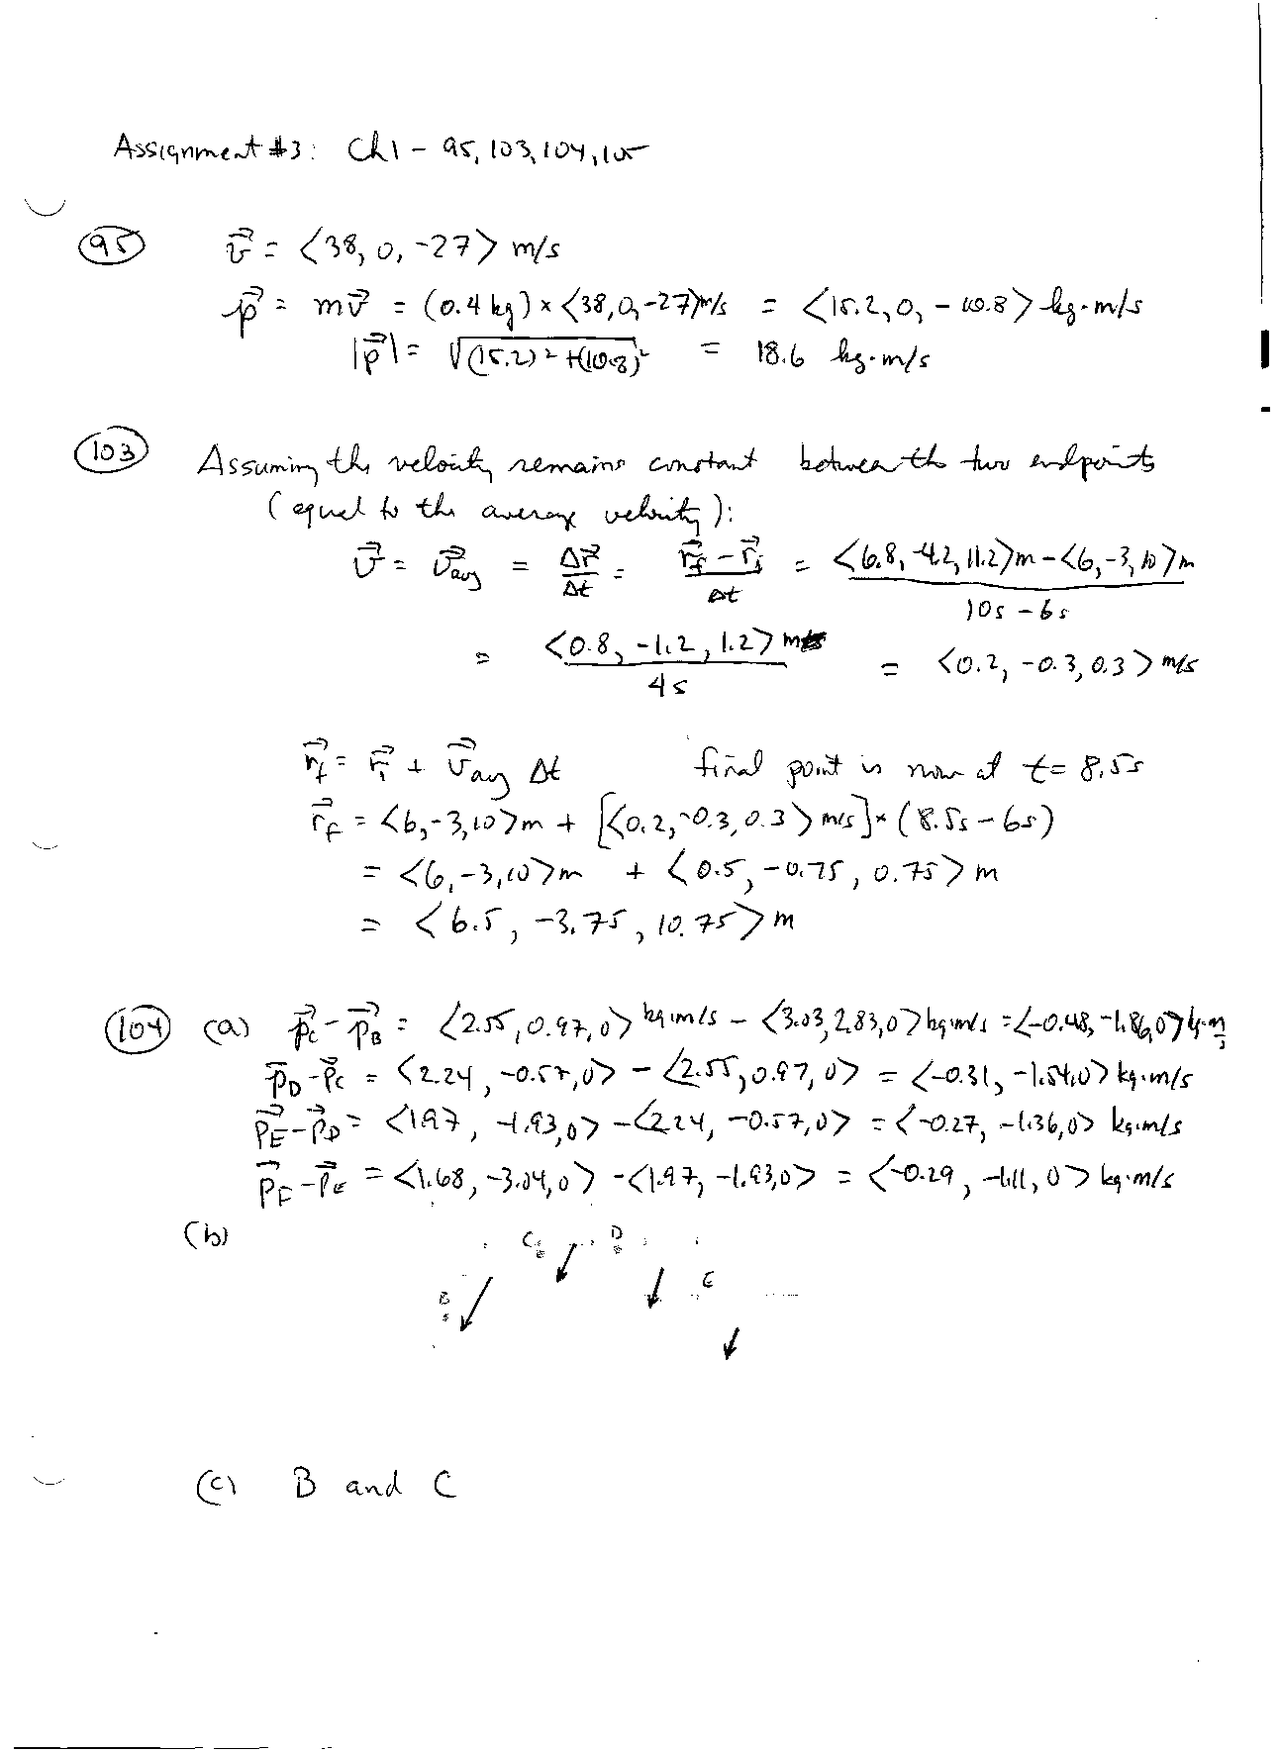 Assignment #3: Ch1 - 95, 103, 104, 105
95 v⃗ = <38, 0, -27> m/s
p⃗ = mv⃗ = (0.4 kg) × <38, 0, -27> m/s = <15.2, 0, -10.8> kg·m/s
|p⃗| = √(15.2)² + (10.8)² = 18.6 kg·m/s
103 Assuming the velocity remains constant between the two endpoints
(equal to the average velocity):
v⃗ = v⃗avg = Δr⃗/Δt = (r⃗f - r⃗i)/Δt = (<6.8, -4.2, 11.2> m - <6, -3, 10> m)/(10s - 6s)
= <0.8, -1.2, 1.2> m/4s = <0.2, -0.3, 0.3> m/s
r⃗f = r⃗i + v⃗avg Δt final point is now at t = 8.5s
r⃗f = <6, -3, 10> m + [<0.2, -0.3, 0.3> m/s] × (8.5s - 6s)
= <6, -3, 10> m + <0.5, -0.75, 0.75> m
= <6.5, -3.75, 10.75> m
104 (a) p⃗C - p⃗B = <2.55, 0.97, 0> kg·m/s - <3.03, 2.83, 0> kg·m/s = <-0.48, -1.86, 0> kg·m/s
p⃗D - p⃗C = <2.24, -0.57, 0> - <2.55, 0.97, 0> = <-0.31, -1.54, 0> kg·m/s
p⃗E - p⃗D = <1.97, -1.93, 0> - <2.24, -0.57, 0> = <-0.27, -1.36, 0> kg·m/s
p⃗F - p⃗E = <1.68, -3.04, 0> - <1.97, -1.93, 0> = <-0.29, -1.11, 0> kg·m/s
(b)
C D
B E
(c) B and C